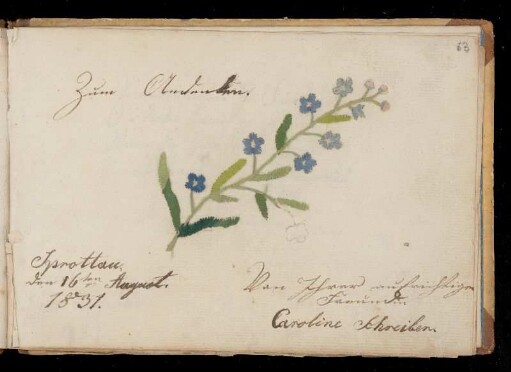 63
Zum Andenken.
Sprottau,
den 16ten August.
1831.
Von Ihrer aufrichtigen
Freundin
Caroline Schreiber.